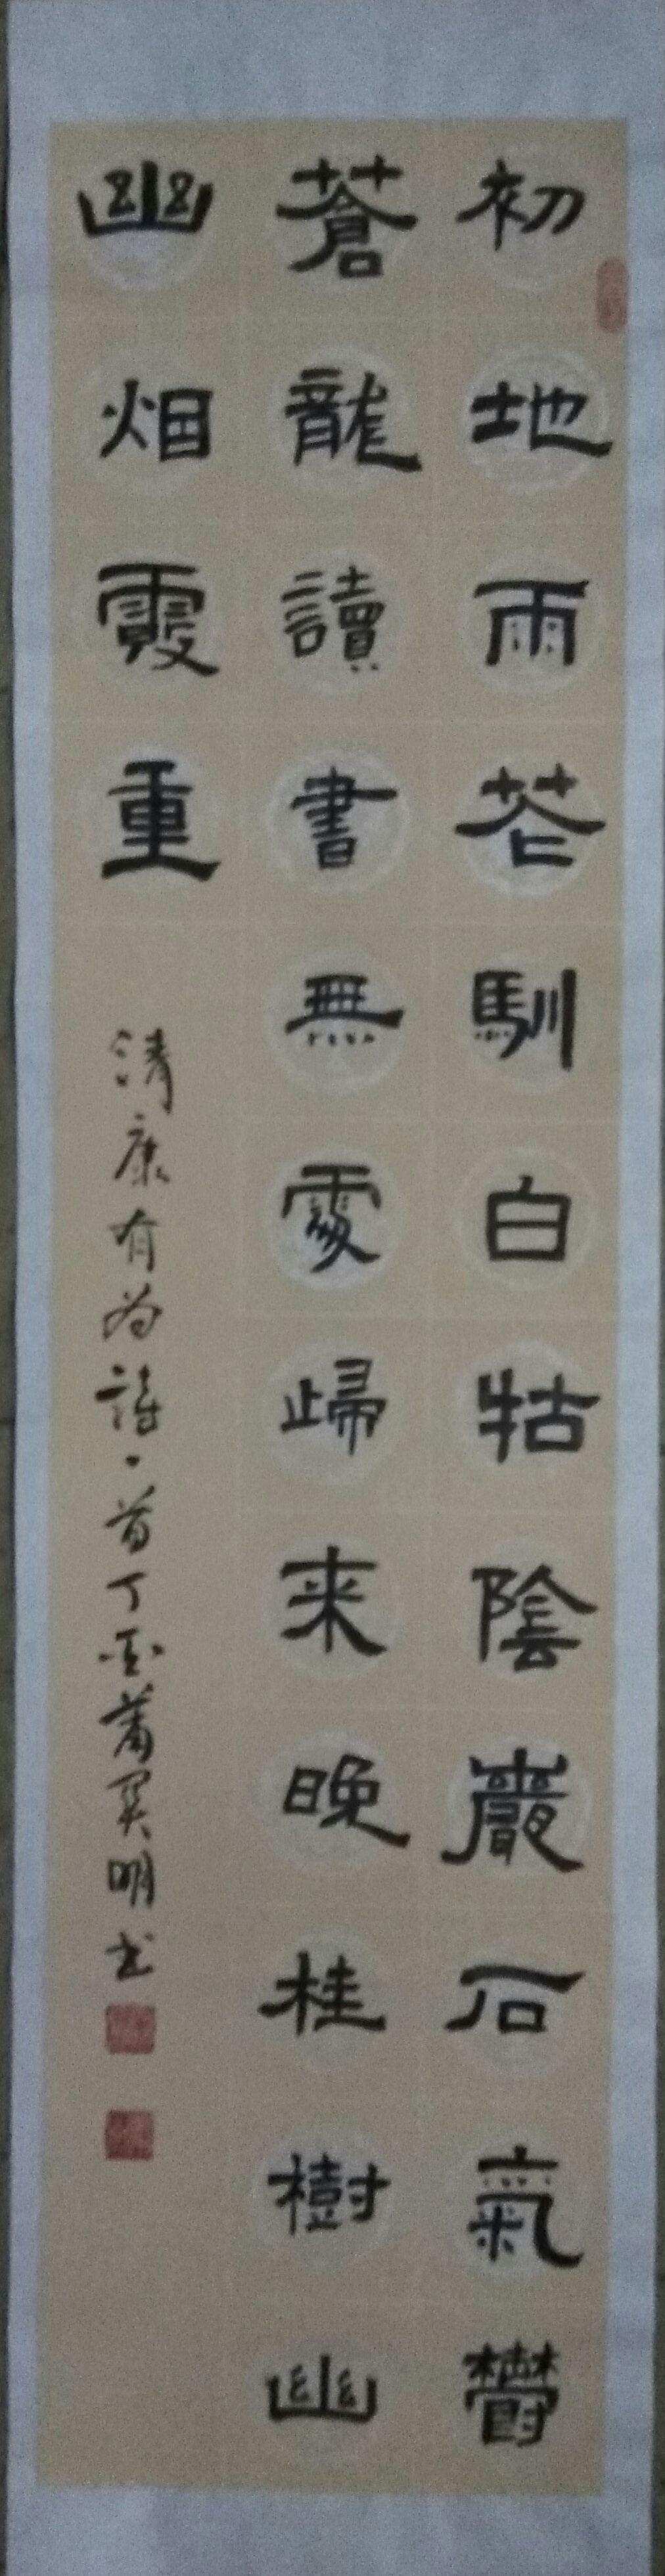 初地雨花馴白牯陰巖石氣鬱
蒼龍讀書無處歸来晚桂樹幽
幽烟霞重
清康有为詩一首丁酉明书